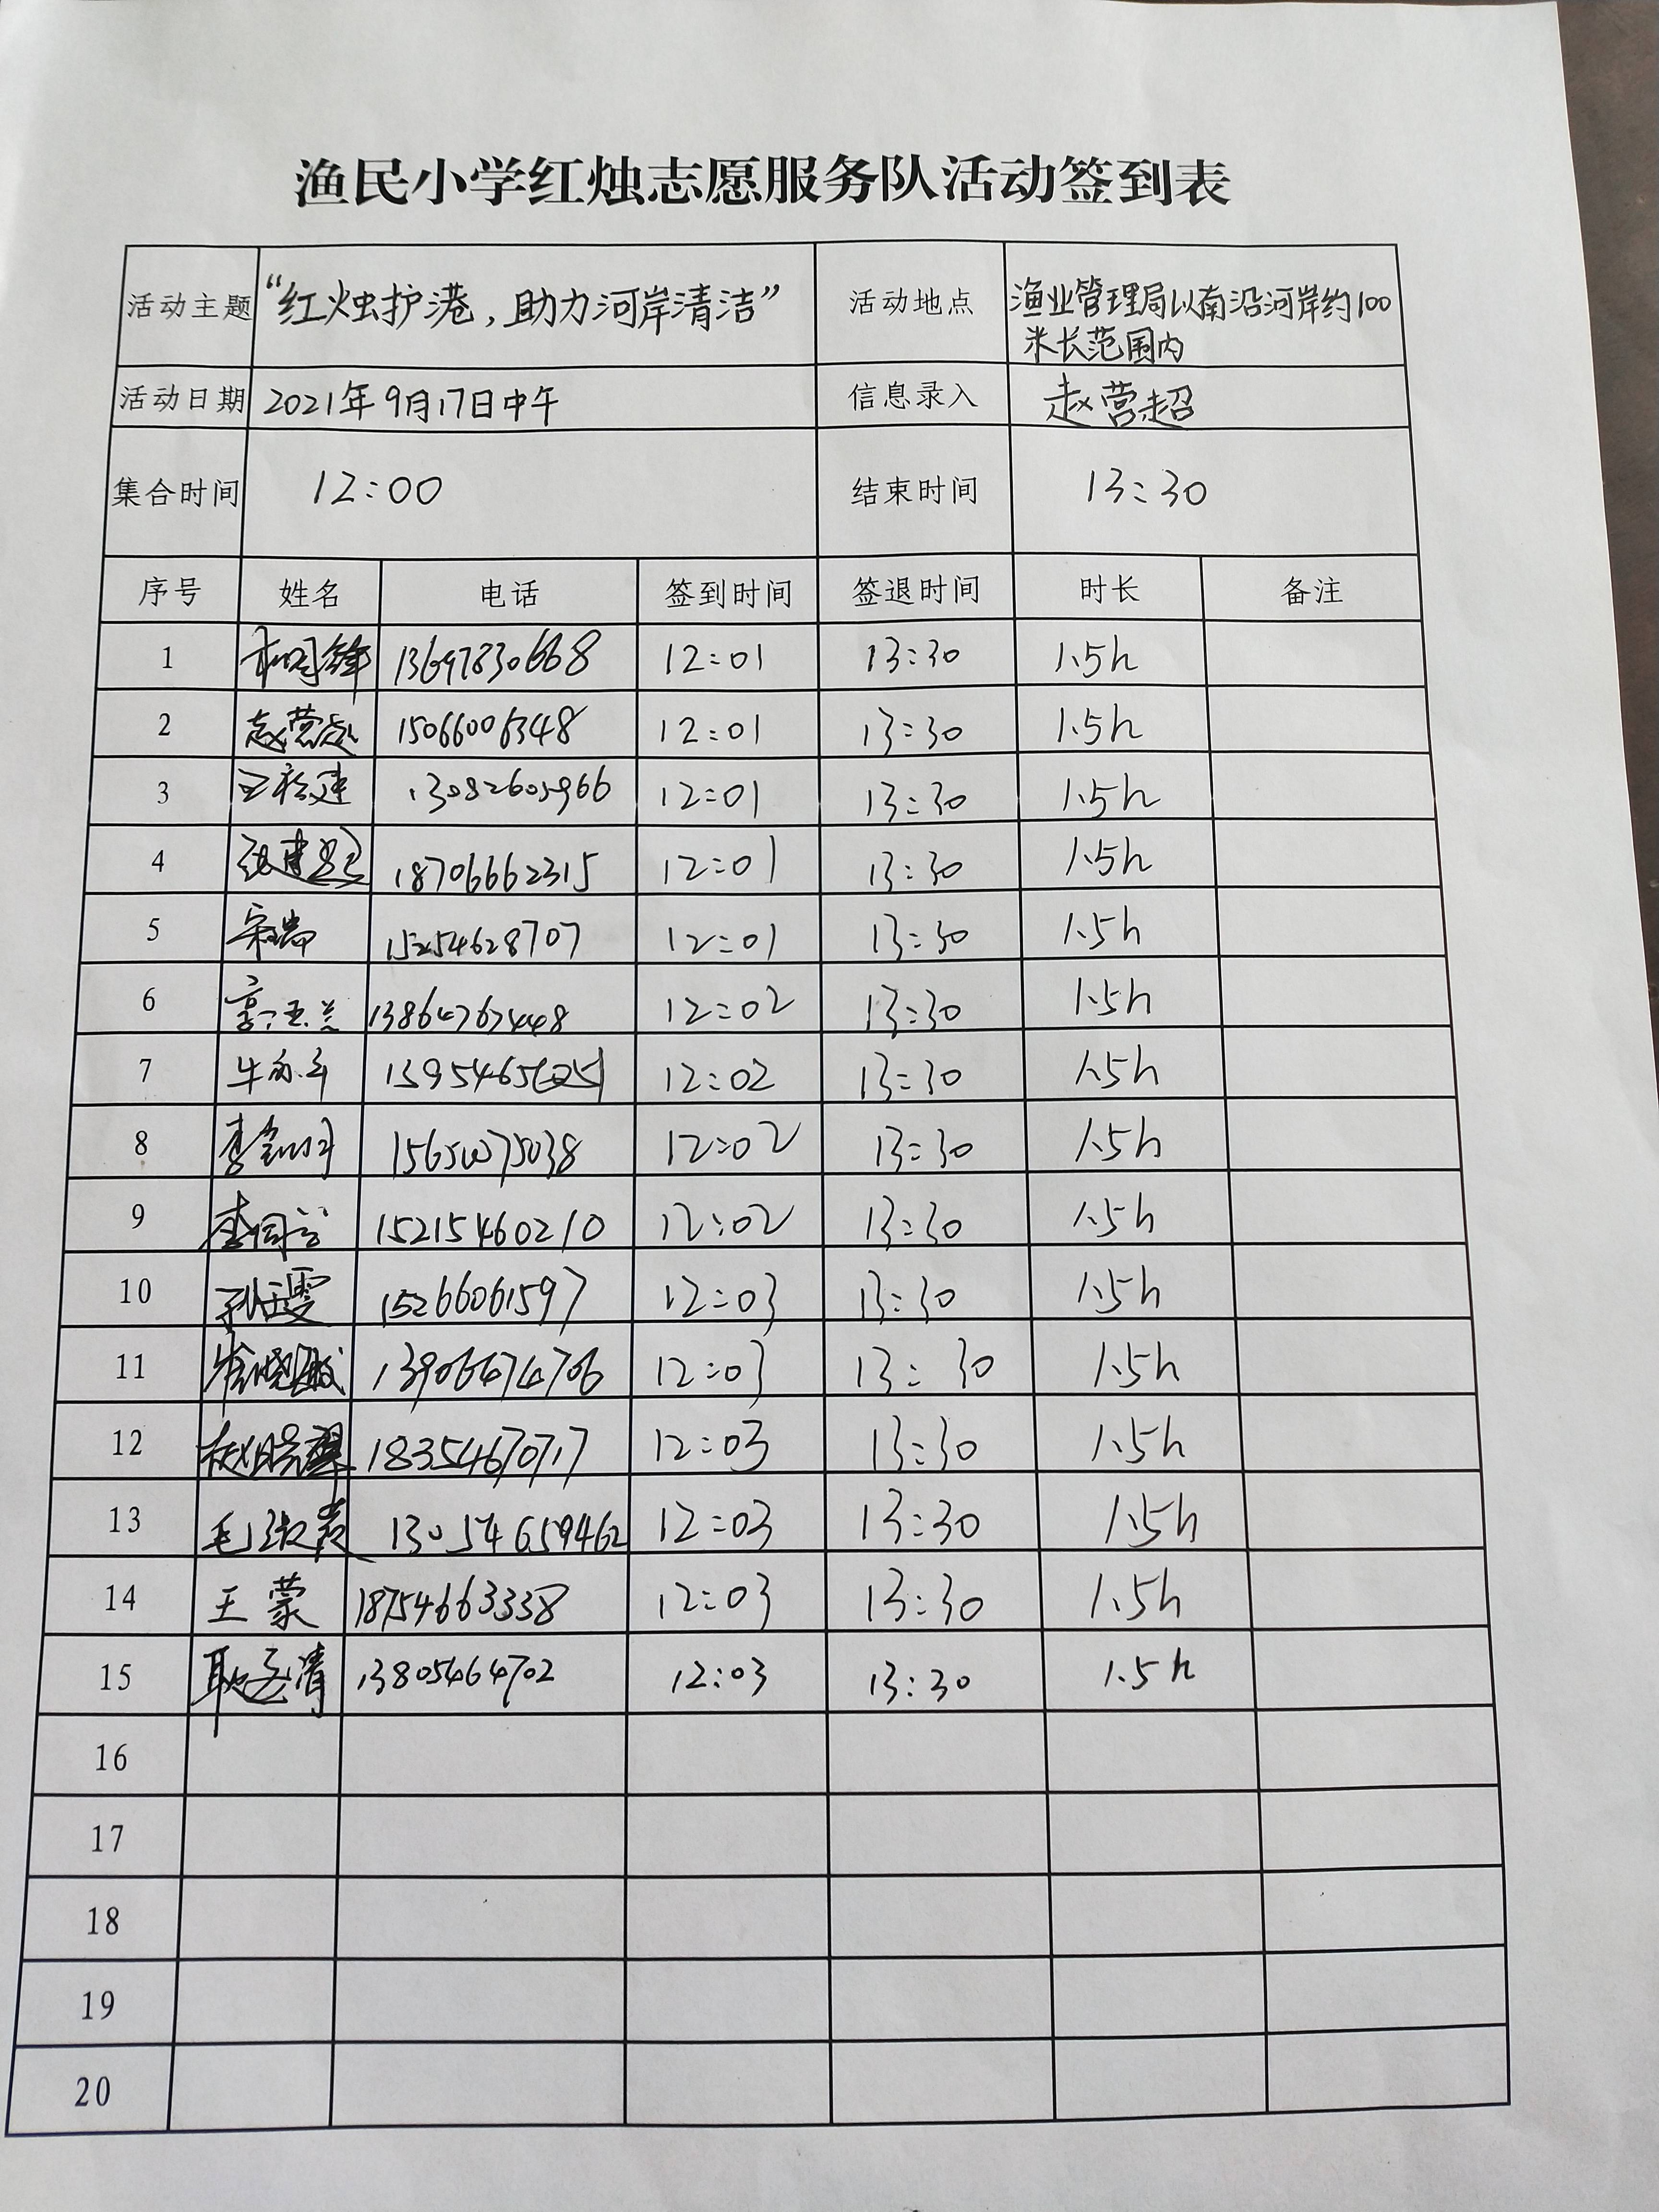 渔民小学红烛志愿服务队活动签到表
活动主题 “红烛护港，助力河岸清洁” 活动地点 渔业管理局以南沿河岸约100
米长范围内
活动日期 2021年9月17日中午 信息录入 赵营超
集合时间 12:00 结束时间 13:30
序号 姓名 电话 签到时间 签退时间 时长 备注
1 13697830668 12:01 13:30 1.5h
2 赵营超 15066006348 12:01 13:30 1.5h
3 13082605966 12:01 13:30 1.5h
4 18706662315 12:01 13:30 1.5h
5 宋瑞 15254628707 12:01 13:30 1.5h
6 12:02 13:30 1.5h
7 12:02 13:30 1.5h
8 12:02 13:30 1.5h
9 15215460210 12:02 13:30 1.5h
10 15266061597 12:03 13:30 1.5h
11 13906474706 12:03 13:30 1.5h
12 18354670717 12:03 13:30 1.5h
13 12:03 13:30 1.5h
14 王蒙 18754663338 12:03 13:30 1.5h
15 13805464702 12:03 13:30 1.5h
16
17
18
19
20